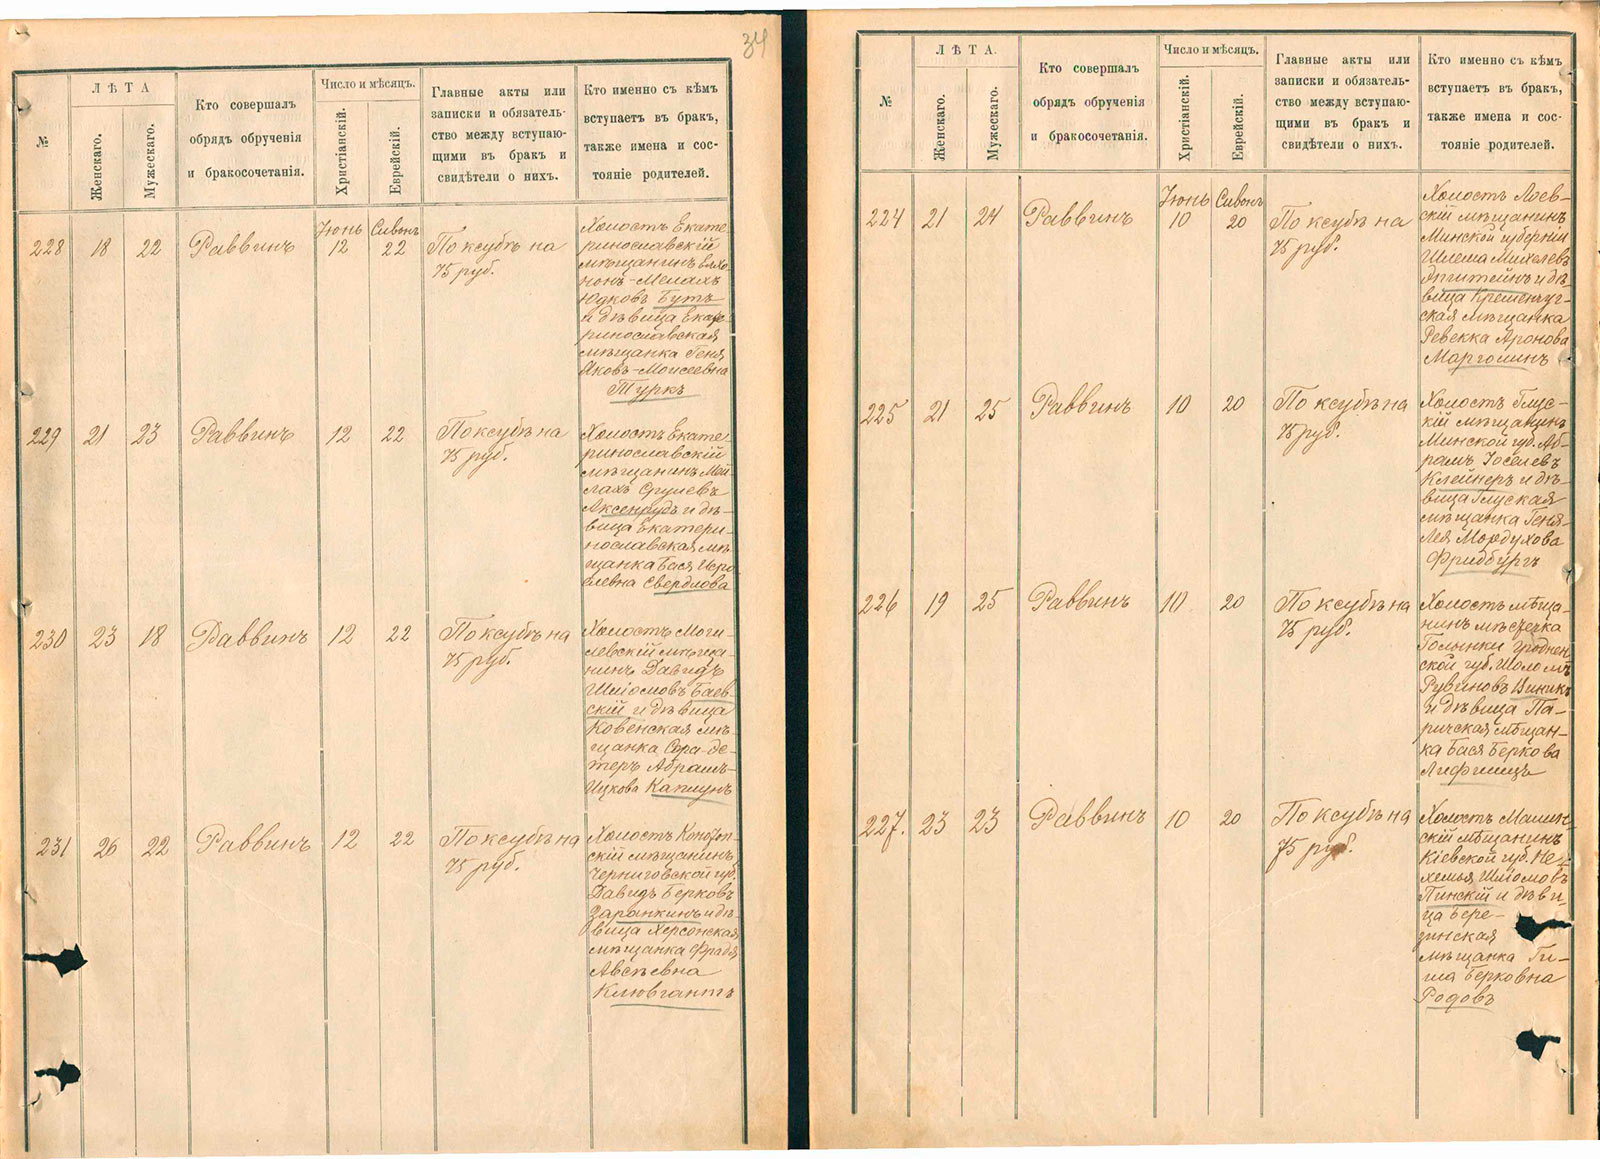 34
№
ЛѢТА
Женскаго.
Мужескаго.
Кто совершалъ
обрядъ обрученія
и бракосочетанія.
Число и мѣсяцъ.
Христіанскій.
Еврейскій.
Главные акты или
записки и обязатель-
ство между вступаю-
щими въ бракъ и
свидѣтели о нихъ.
Кто именно съ кѣмъ
вступаетъ въ бракъ,
также имена и сос-
тояніе родителей.
228
18
22
Раввинъ
Іюнь
12
Сивонъ
22
По ксубѣ на
75 руб.
Холостъ Екате-
ринославскій
мѣщанинъ
Юдковъ Бутъ
и дѣвица Екате-
ринославская
мѣщанка Геня
Яковъ-Моисеевна
Туркъ
229
21
23
Раввинъ
12
22
По ксубѣ на
75 руб.
Холостъ Екате-
ринославскій
мѣщанинъ Мей-
лахъ Срулевъ
Аксенрудъ и дѣ-
вица Екатери-
нославская мѣ-
щанка Бася Изро-
илевна Свердлова
230
23
18
Раввинъ
12
22
По ксубѣ на
75 руб.
Холостъ Моги-
левскій мѣща-
нинъ Давидъ
Шліомовъ Баев-
скій и дѣвица
Ковенская мѣ-
щанка Сора-Де-
теръ Абрамъ-
Ицкова Каплунъ
231
26
22
Раввинъ
12
22
По ксубѣ на
75 руб.
Холостъ Коното-
скій мѣщанинъ
Черниговской губ.
Давидъ Берковъ
Заранкинъ и дѣ-
вица Херсонская
мѣщанка Фрадя
Авсѣевна
Клювгантъ
№
ЛѢТА.
Женскаго.
Мужескаго.
Кто совершалъ
обрядъ обрученія
и бракосочетанія.
Число и мѣсяцъ.
Христіанскій.
Еврейскій.
Главные акты или
записки и обязатель-
ство между вступаю-
щими въ бракъ и
свидѣтели о нихъ.
Кто именно съ кѣмъ
вступаетъ въ бракъ,
также имена и сос-
тояніе родителей.
224
21
24
Раввинъ
Іюнь
10
Сивонъ
20
По ксубѣ на
75 руб.
Холостъ Лоев-
скій мѣщанинъ
Минской губерніи
Шлема Михелевъ
Эпштейнъ и дѣ-
вица Кременчуг-
ская мѣщанка
Ревекка Аронова
Марголинъ
225
21
25
Раввинъ
10
20
По ксубѣ на
75 руб.
Холостъ Глус-
кій мѣщанинъ
Минской губ. Аб-
рамъ Іоселевъ
Клейнеръ и дѣ-
вица Глуская
мѣщанка Геня-
Лея Мордухова
Фридбургъ
226
19
25
Раввинъ
10
20
По ксубѣ на
75 руб.
Холостъ мѣща-
нинъ мѣстечка
Голынки Гроднен-
ской губ. Шоломъ
Рувиновъ Виникъ
и дѣвица Па-
ричская мѣщан-
ка Бася Беркова
Лифшицъ
227.
23
23
Раввинъ
10
20
По ксубѣ на
75 руб.
Холостъ
скій мѣщанинъ
Кіевской губ. Не-
хемья Шліомовъ
Пинскій и дѣви-
ца Бере-
зинская
мѣщанка Ги-
ша Берковна
Родовъ